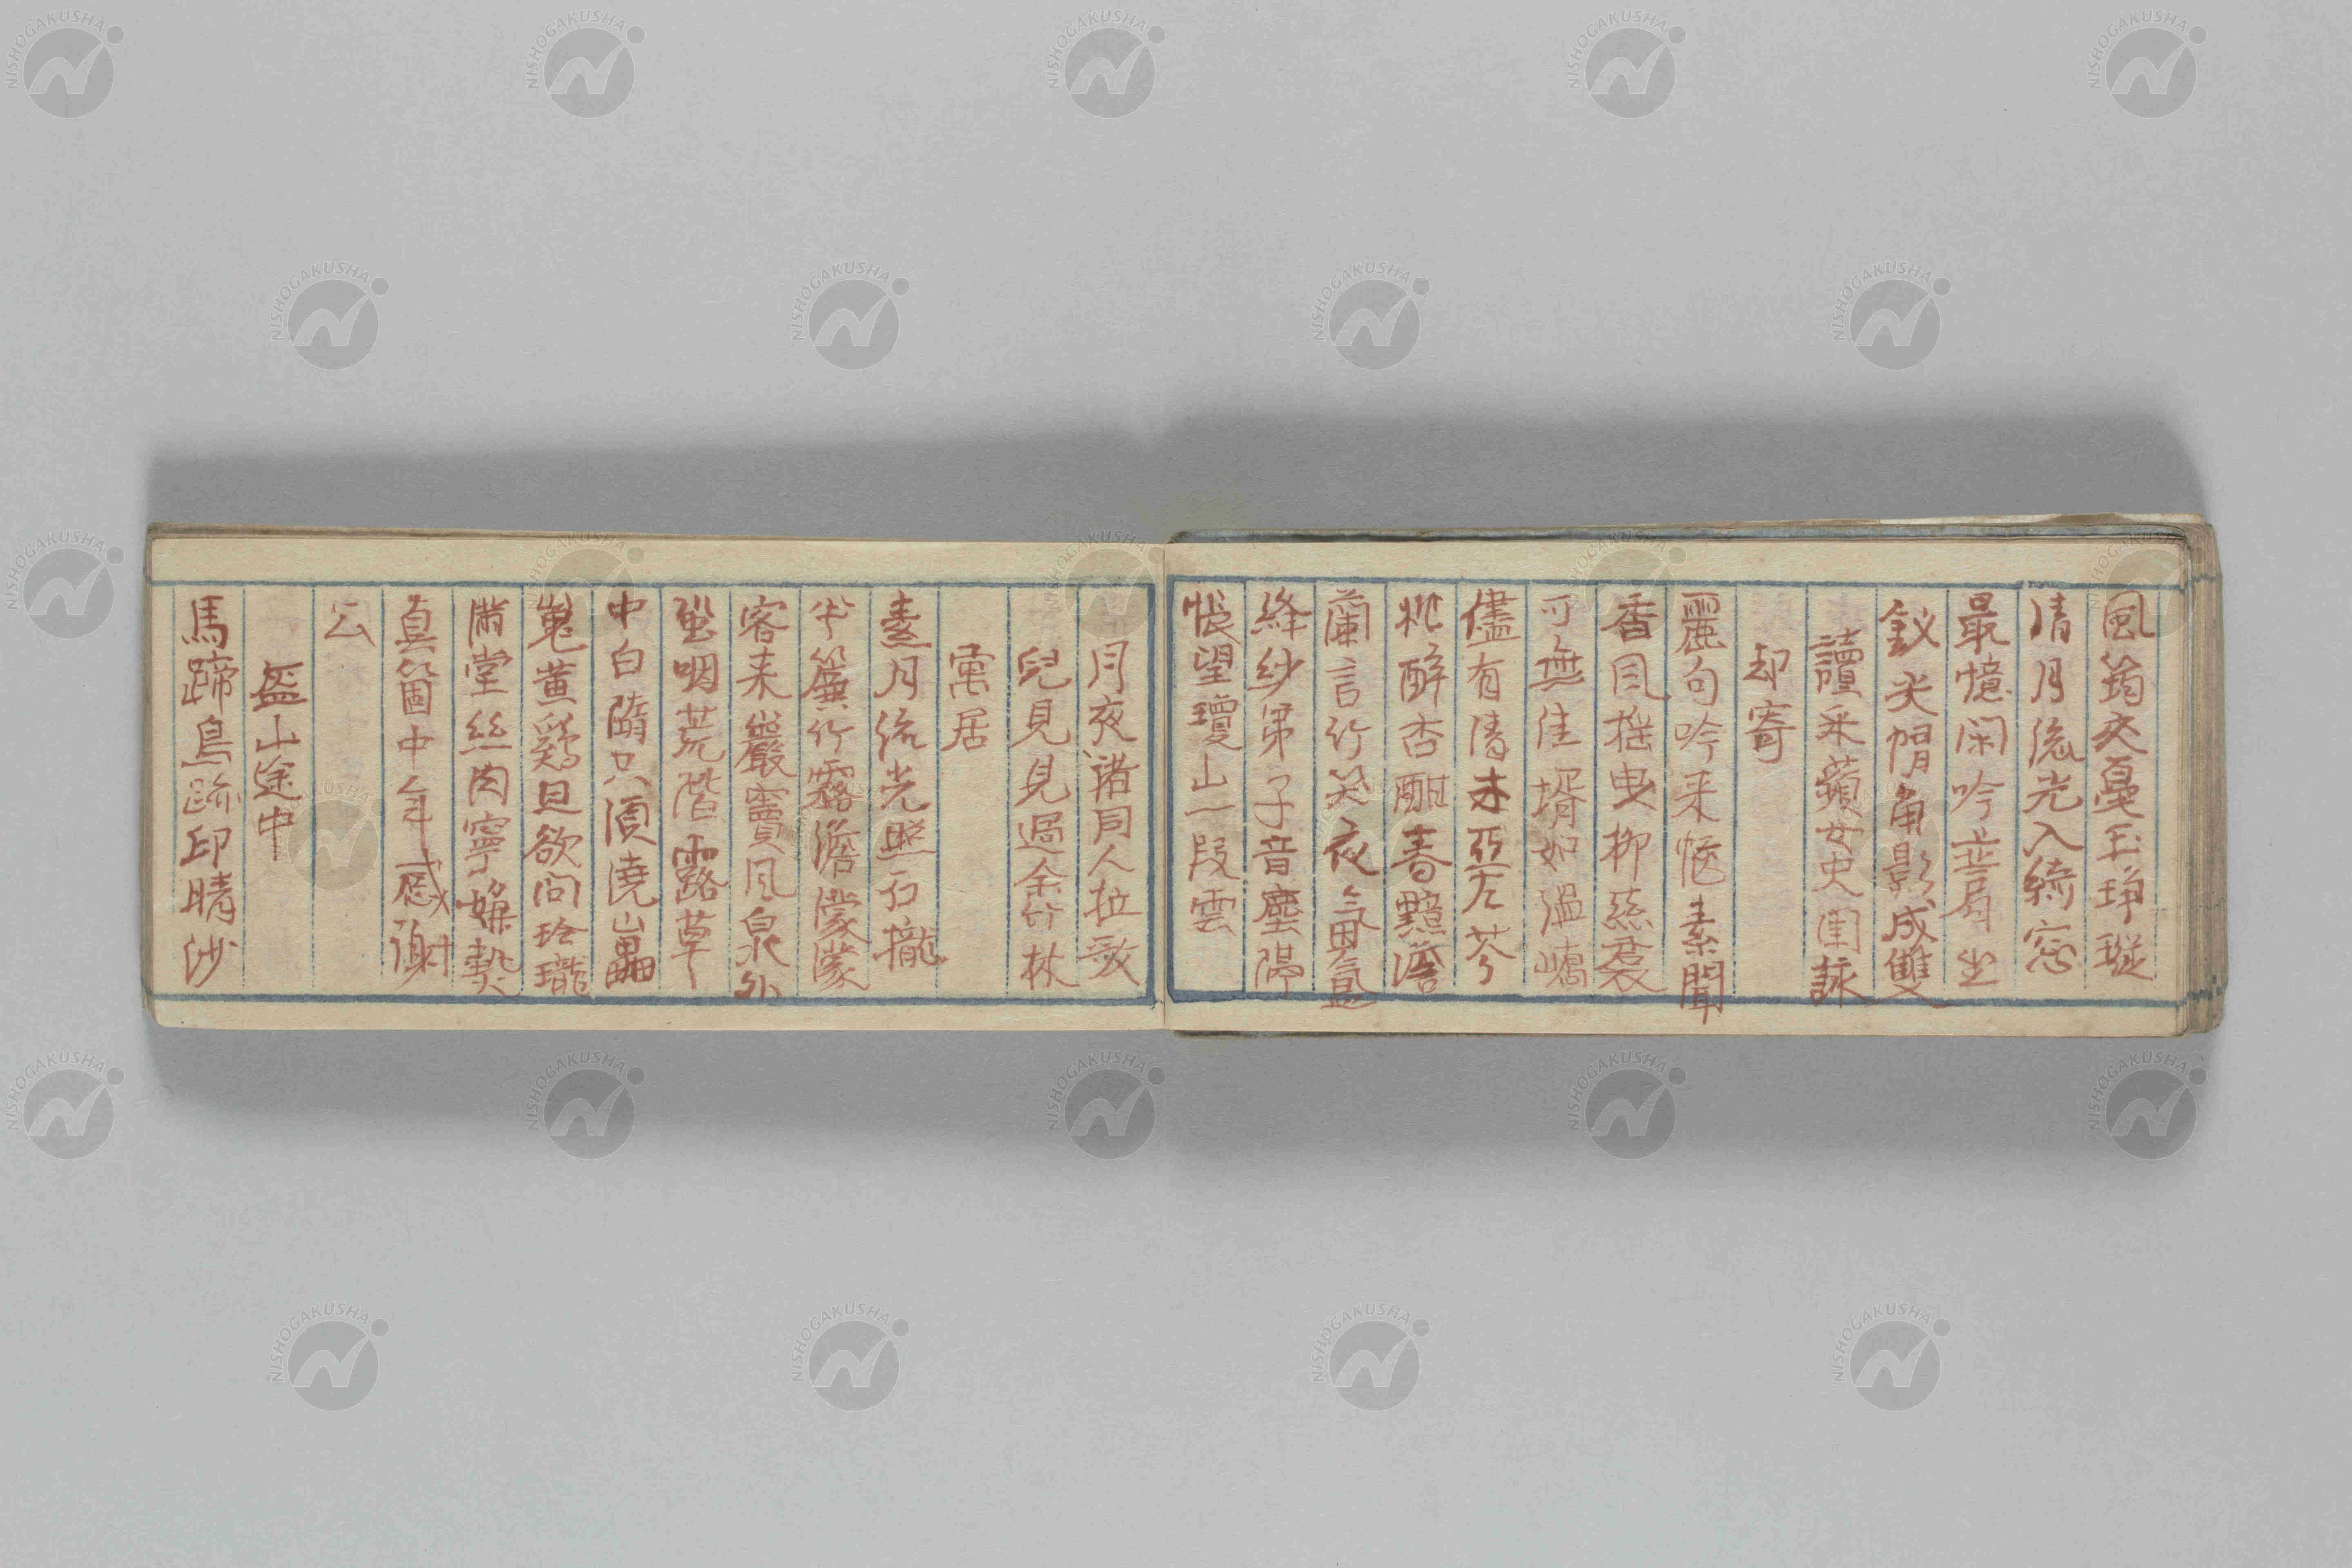 風筠交戛玉琤瑽
清月流光入綺窓
最憶闲吟並肩坐
釵尖帽角影成雙
讀采蘋女史閨詠
却寄
麗句吟来恠素聞
香風揺曳柳絲裙
可無佳壻如温嶠
儘有清才亞左芬
桃酔杏酣春黯澹
蘭言竹笑夜氤氳
絳紗弟子音塵隔
悵望瓊山一段雲
月夜諸同人拉歌
兒見見過余竹林
寓居
素月流光照石櫳
半簾竹霧澹濛濛
客来巌竇風泉外
蛍咽荒階露草
中白墮只須澆磊
嵬黄鷄且欲问玲瓏
滿堂絲肉寧嫌褻
真箇中年感謝
公
盤山途中
馬蹄鳥跡印晴沙
NISHOGAKUSHA